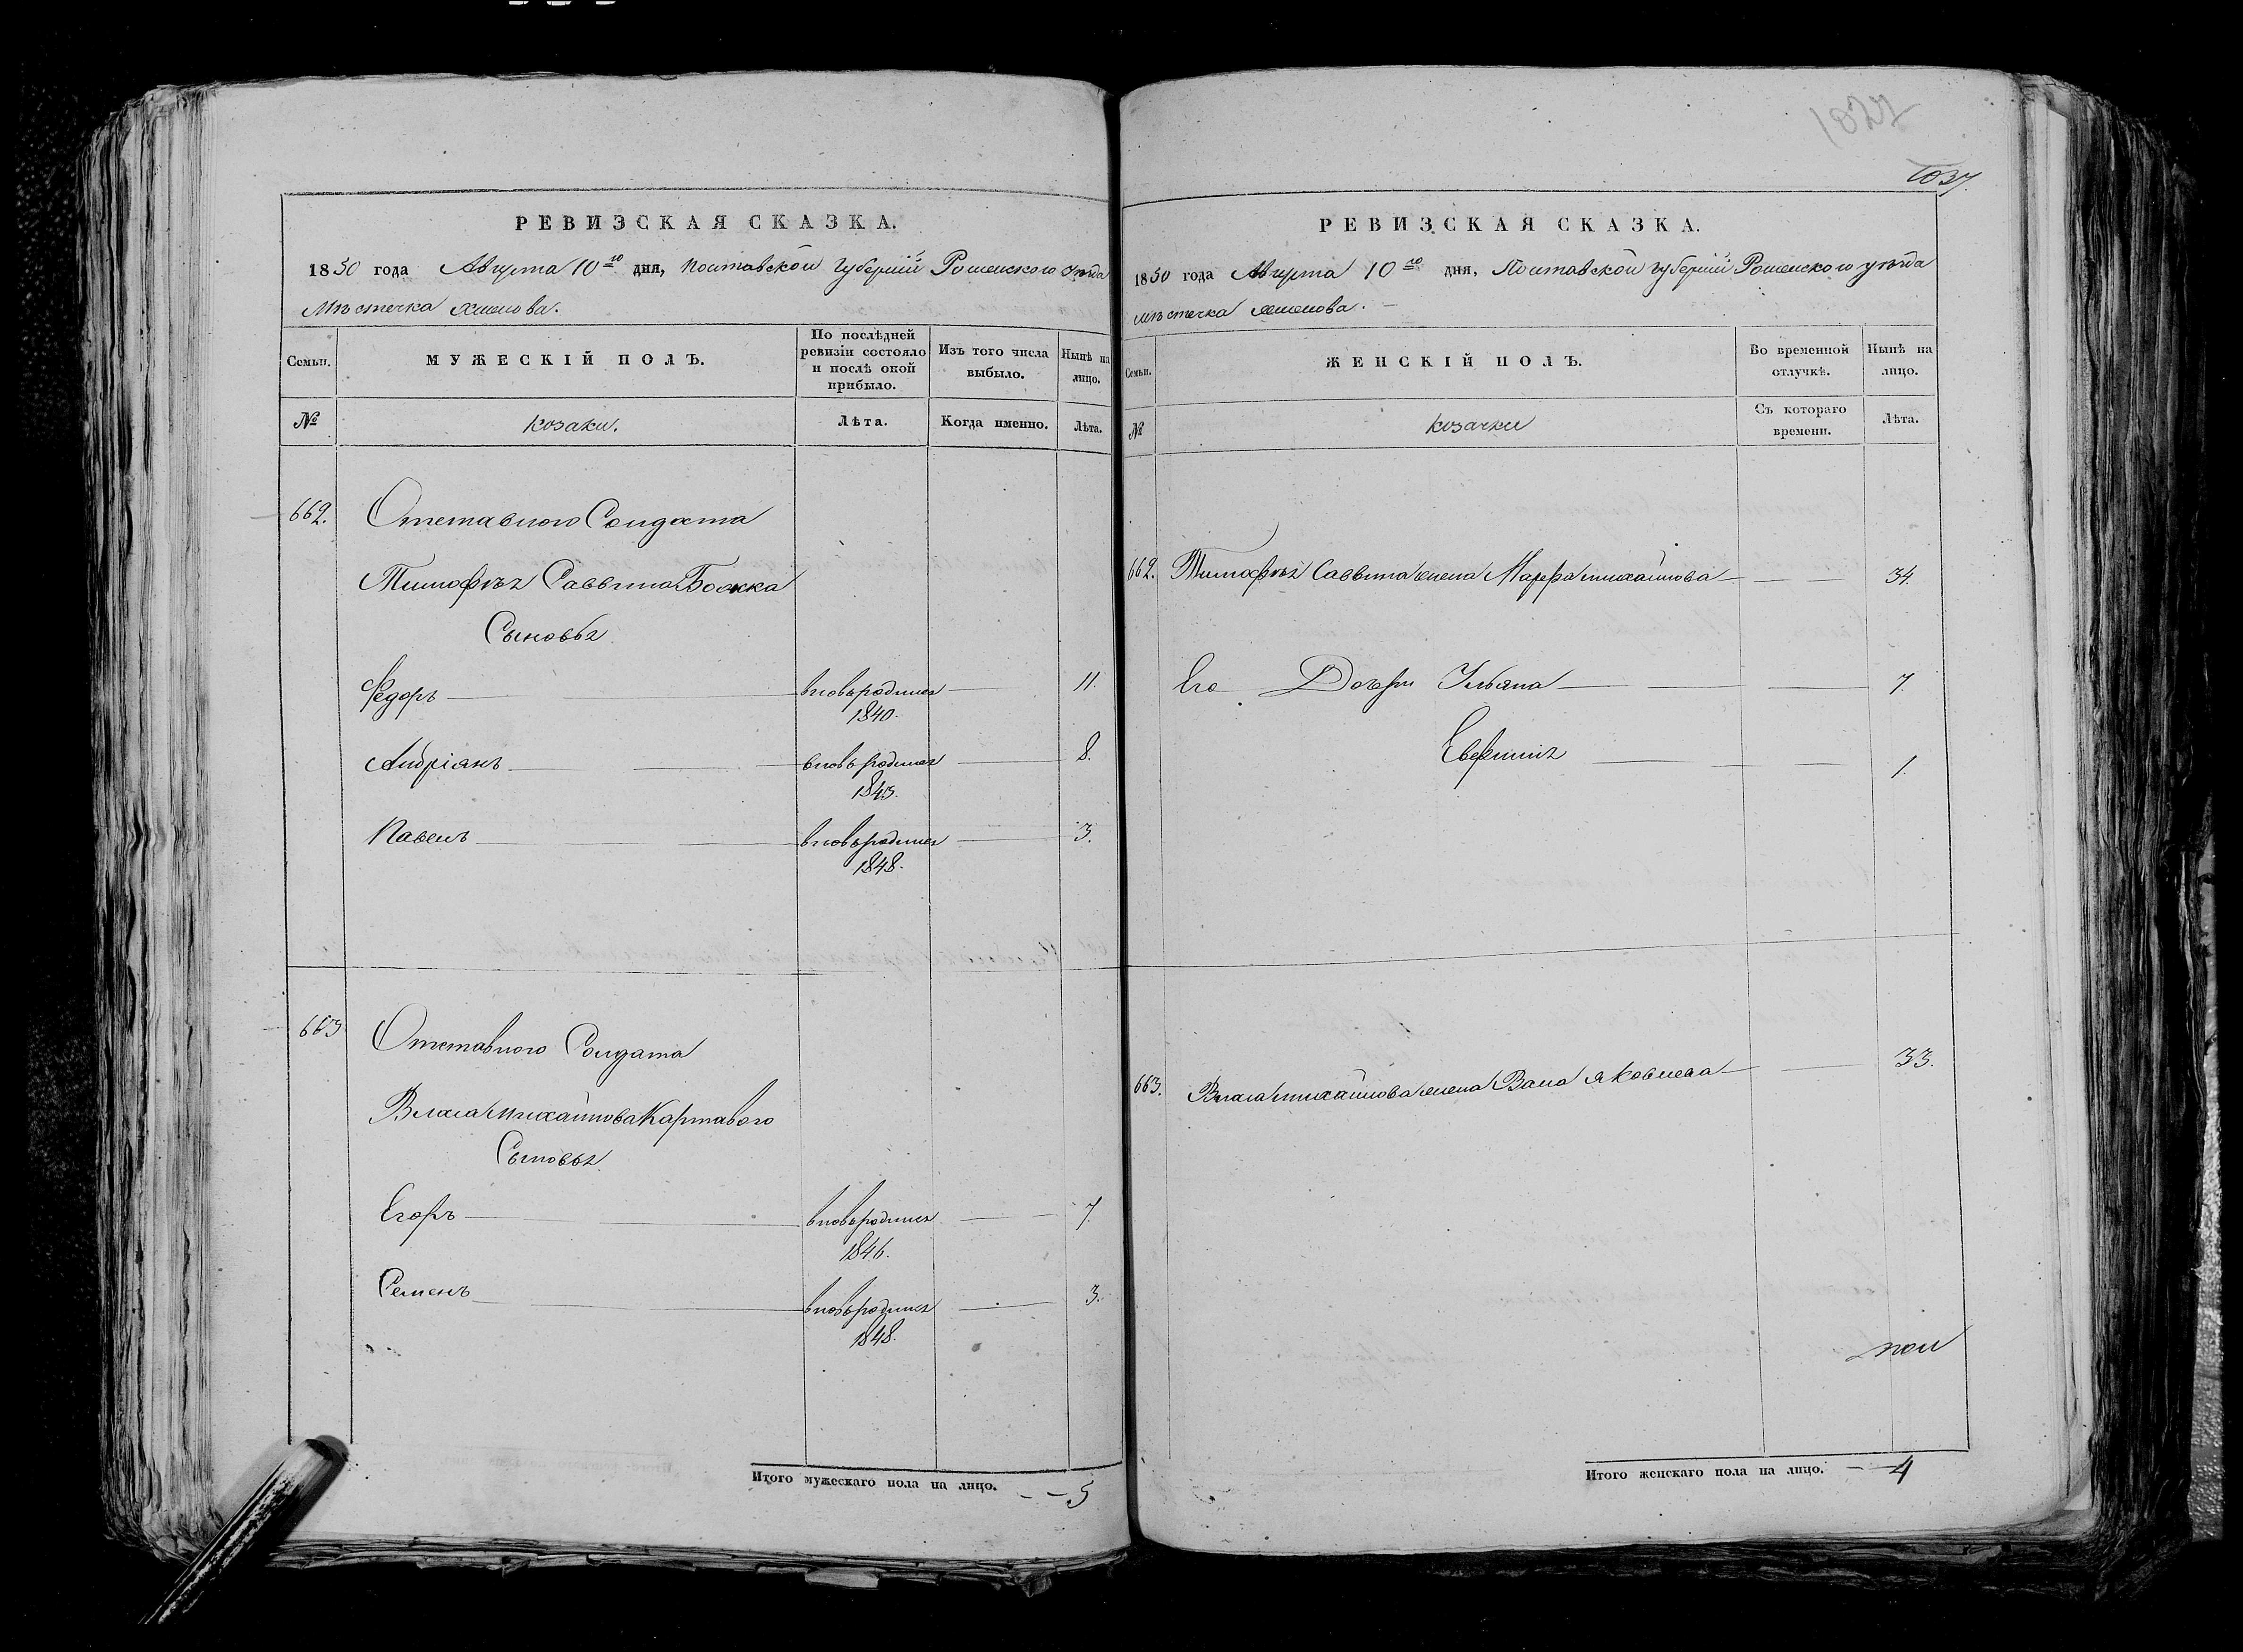 1037.
РЕВИЗСКАЯ СКАЗКА.
1850 года Августа 10го дня, Полтавской губерніи Роменского уѣзда
Мѣстечка Хмелова.
Семьи.
МУЖЕСКІЙ ПОЛЪ.
По послѣдней ревизіи состояло и послѣ оной прибыло.
Изъ того числа выбыло.
Нынѣ на лицо.
№
козаки.
Лѣта.
Когда именно.
Лѣта.
662. Отставного Солдата
Тимофѣя Саввина
Сыновья
Федоръ вновьродился 11.
1840.
Андріянъ вновьродился 8.
1843.
Павелъ вновьродился 3.
1848.
663 Отставного Солдата
Власа михайлова Картавого
Сыновья
Егоръ вновьродился 7.
1846.
Семенъ вновьродился 3.
1848.
Итого мужескаго пола на лицо. 5
РЕВИЗСКАЯ СКАЗКА.
1850 года Августа 10го дня, Полтавской губерніи Роменского уѣзда
мѣстечка хмелова.
Семьи.
ЖЕНСКІЙ ПОЛЪ.
Во временной отлучкѣ.
Нынѣ на лицо.
№
козачки
Съ котораго времени.
Лѣта.
662. Тимофѣя Саввина жена Марфа михайлова 34.
Его Дочери Ульяна 7.
1.
663. Власа михайлова жена яковлева 33.
Итого женскаго пола на лицо. 4